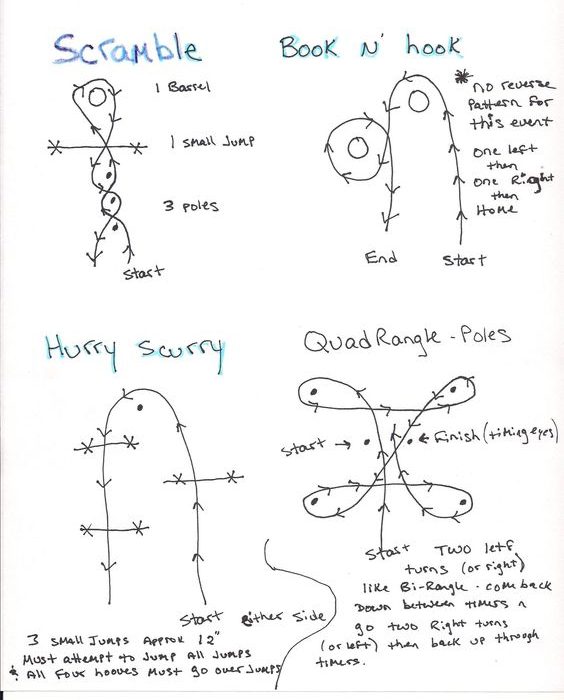 Scramble
1 Barrel
1 small Jump
3 poles
Start
Book N' hook
* no reverse
pattern for
this event
one left
then
one Right
then
Home
End
Start
Hurry Scurry
Start either side
3 small Jumps Approx 12"
Must attempt to Jump All Jumps
& All Four hooves Must go over Jumps
QuadRangle - Poles
Start
Finish (timing eyes)
Start Two left
turns (or right)
like Bi-Rangle - come back
Down between timers n
go two Right turns
(or left) then back up through
timers.